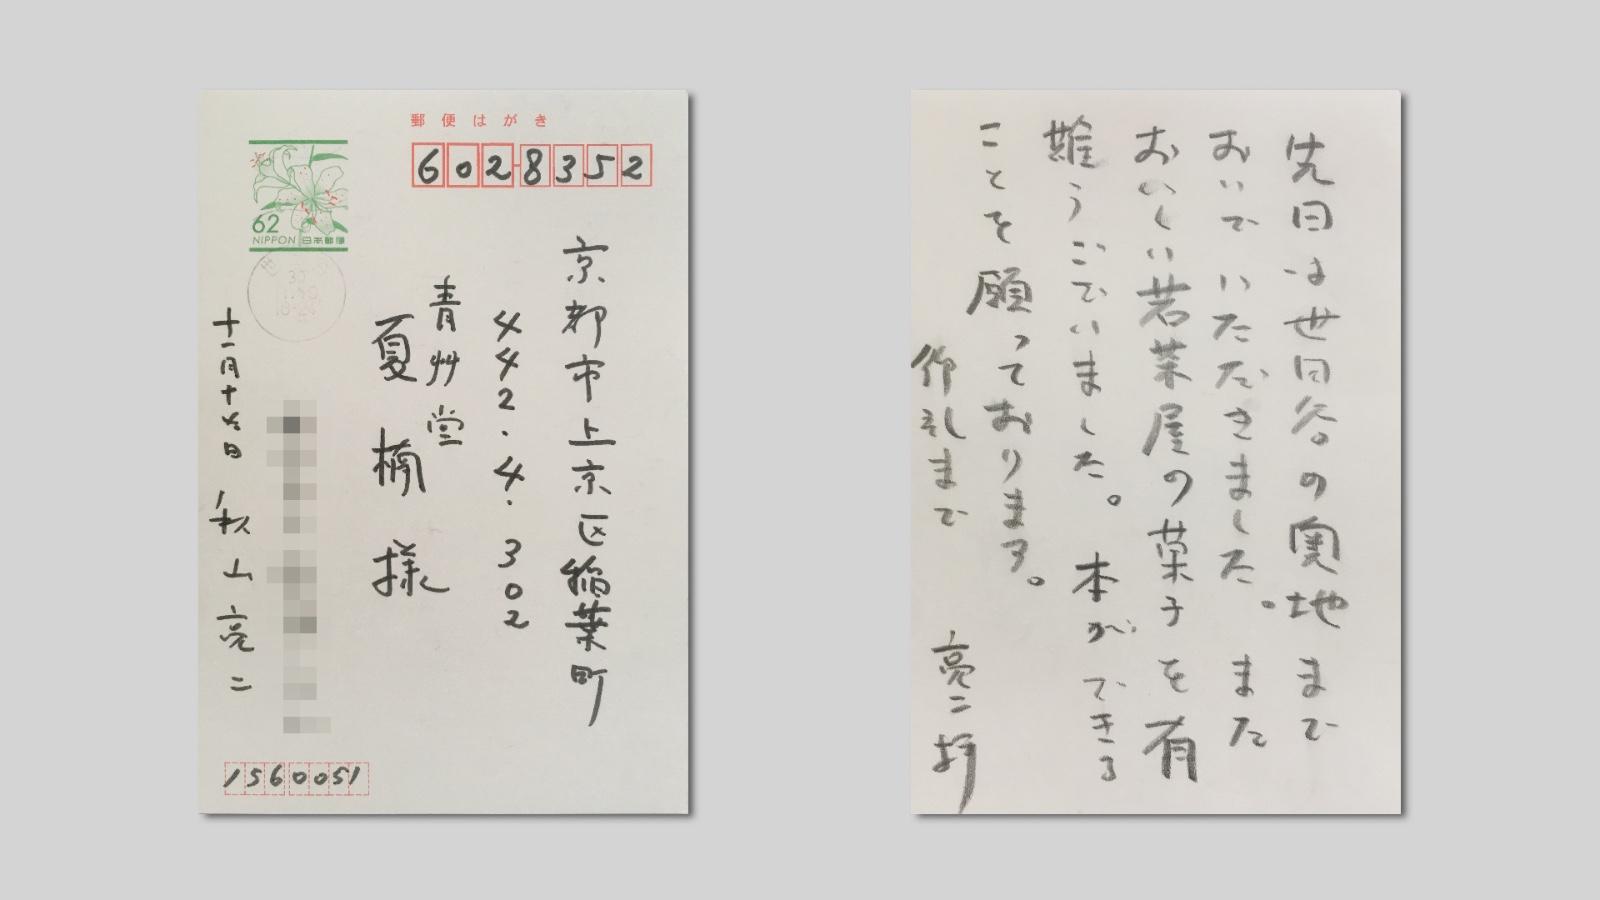 郵便はがき
6028352
62
NIPPON 日本郵便
京都市上京区稲葉町
442.4.302
青艸堂
夏楠様
秋山亮二
1560051
先日は世田谷の奥地まで
おいでいただきました。また
おいしい若菜屋の菓子を有
難うございました。本ができる
ことを願っております。
御礼まで
亮二拝